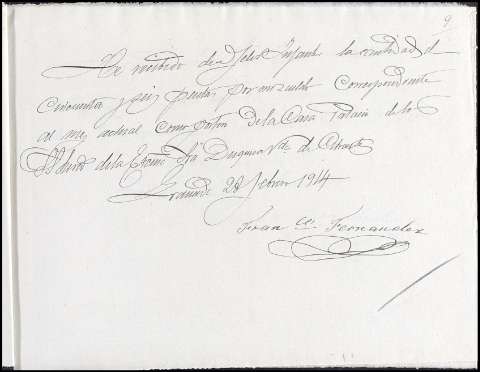 9
He recibido de Felix Infante la cantidad de
Cincuenta y seis pesetas por mi sueldo Correspondiente
al mes actual como peton de la Casa Palacio de los
de la Excma Sra Duquesa Vda de
Granada 28 Febrero 1914
Franco Fernandez